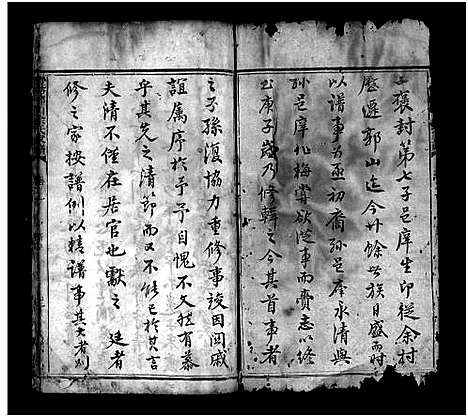 上褒封第七子邑庠生印從余村
歷遷郭山迄今廿餘世族日盛而時
以譜事為亟初裔孫邑庠永清與
孫邑庠北梅嘗欲從事而賫志以終
至庚子歲乃修輯之今其首事者
之子孫復協力重修事竣因閱戚
誼屬序於予予自愧不文然有慕
乎其先之清節而又不能已於其言
夫清不僅在居官也獻之 廷者
修之家按譜例以精譜事其大者則